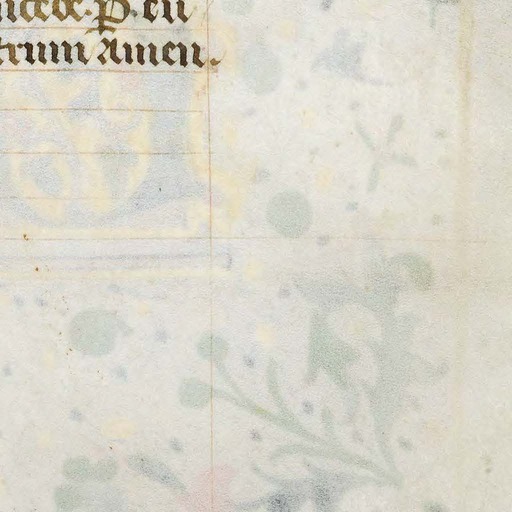 ncede. P. eu
trum Amen.